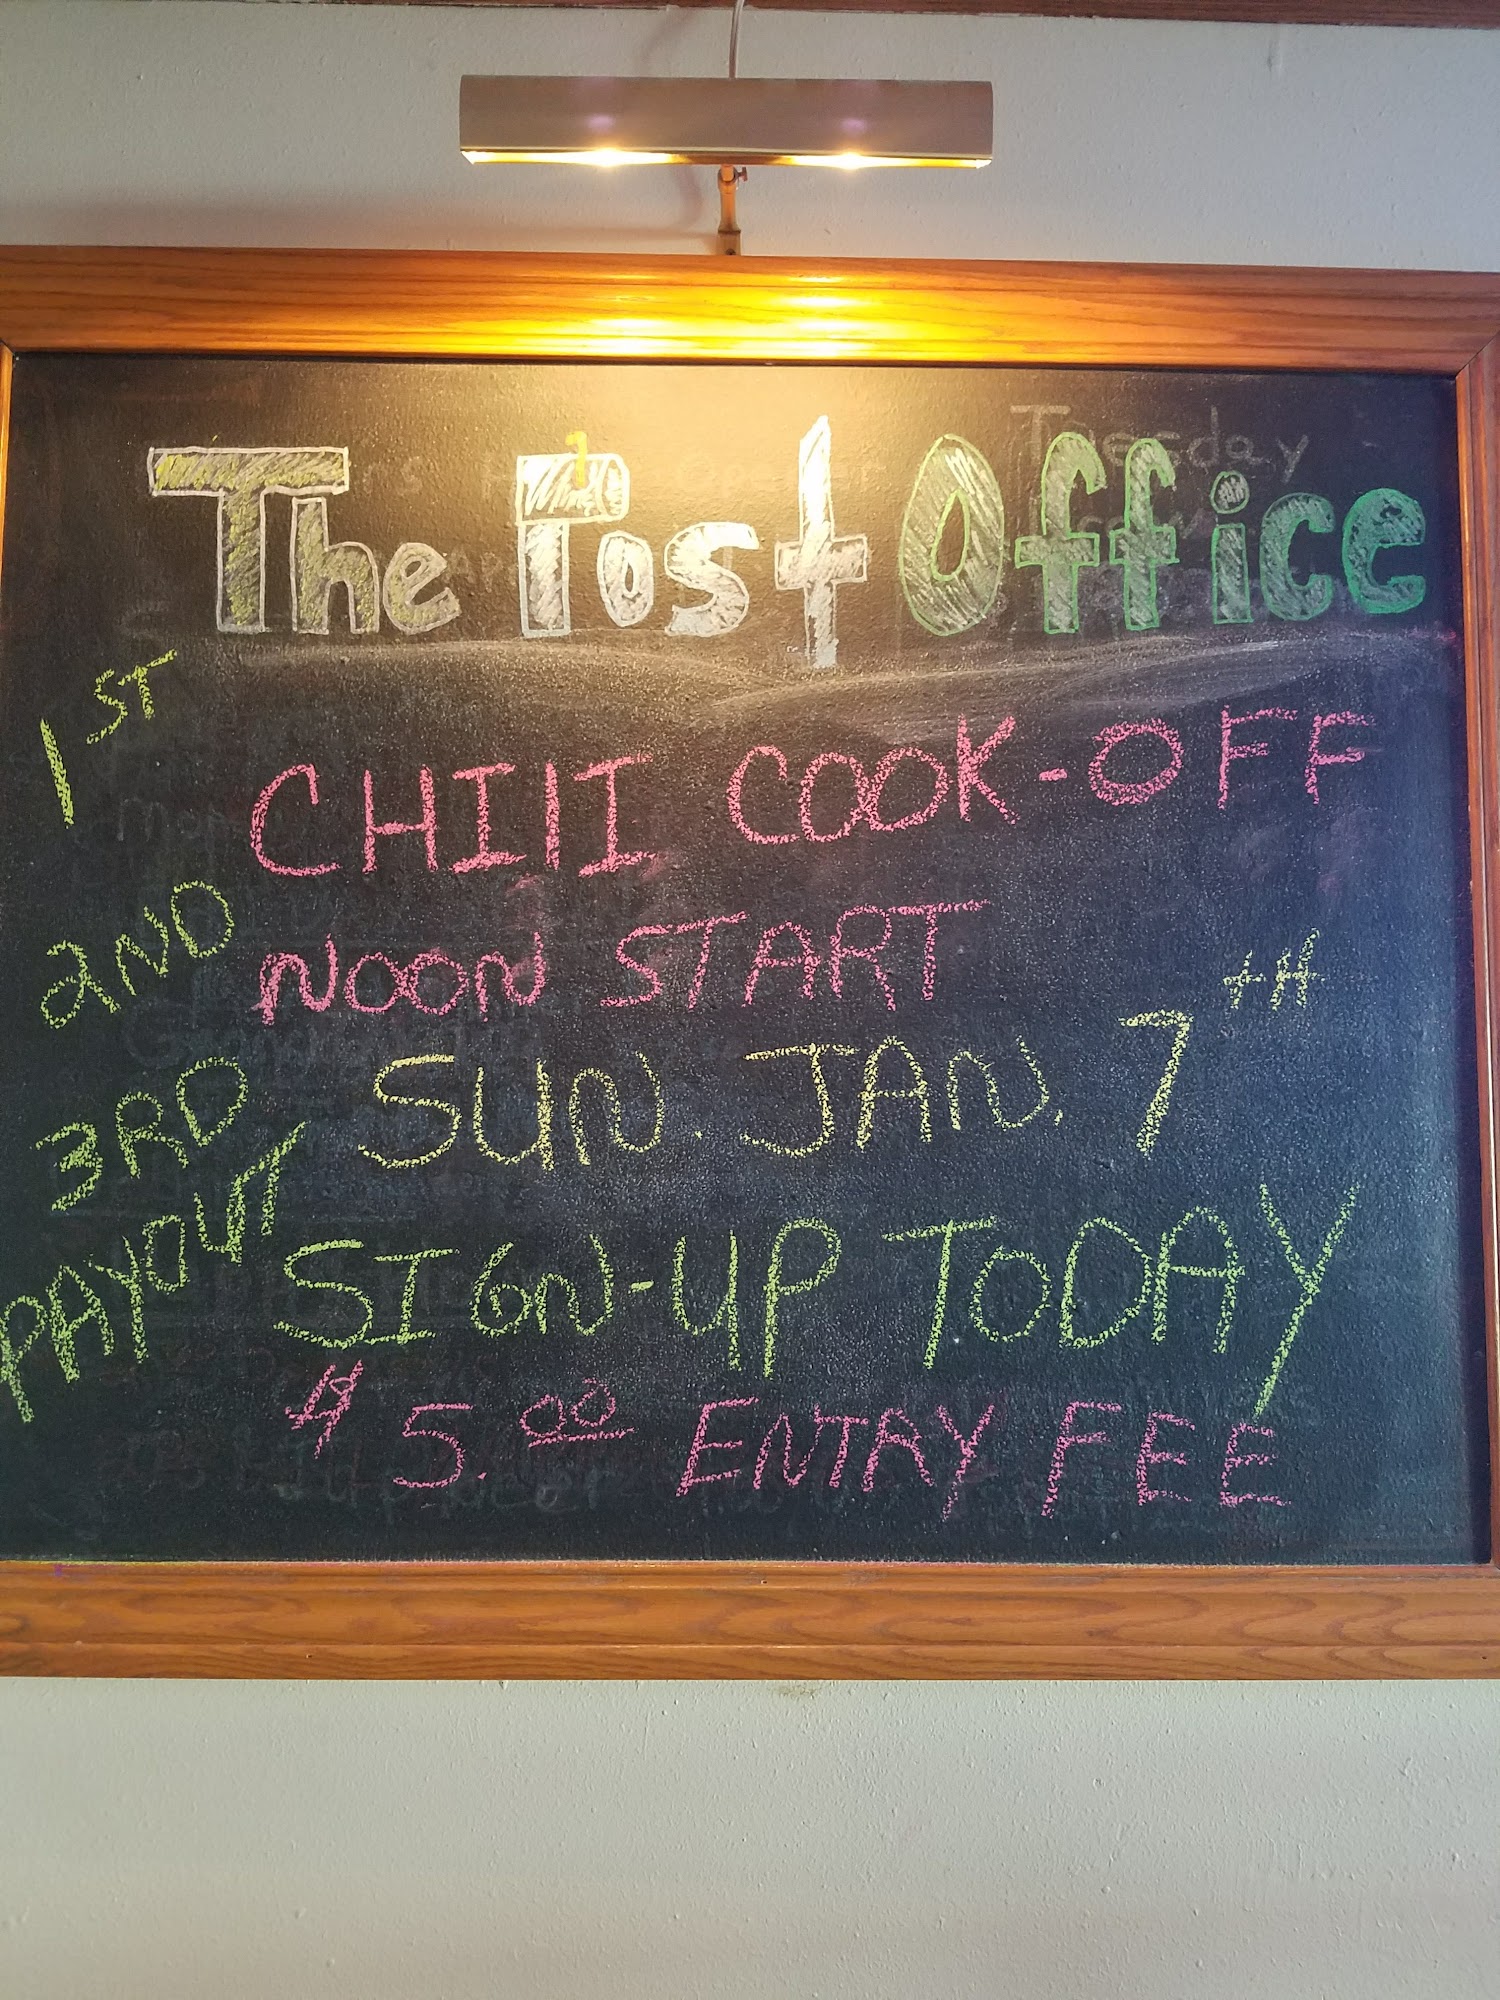 The Post Office
1ST
CHIlI COOK-OFF
2ND
NOON START
3RD
SUN. JAN. 7TH
PAYOUT
SIGN-UP TODAY
$5.00 ENTRY FEE
Tuesday